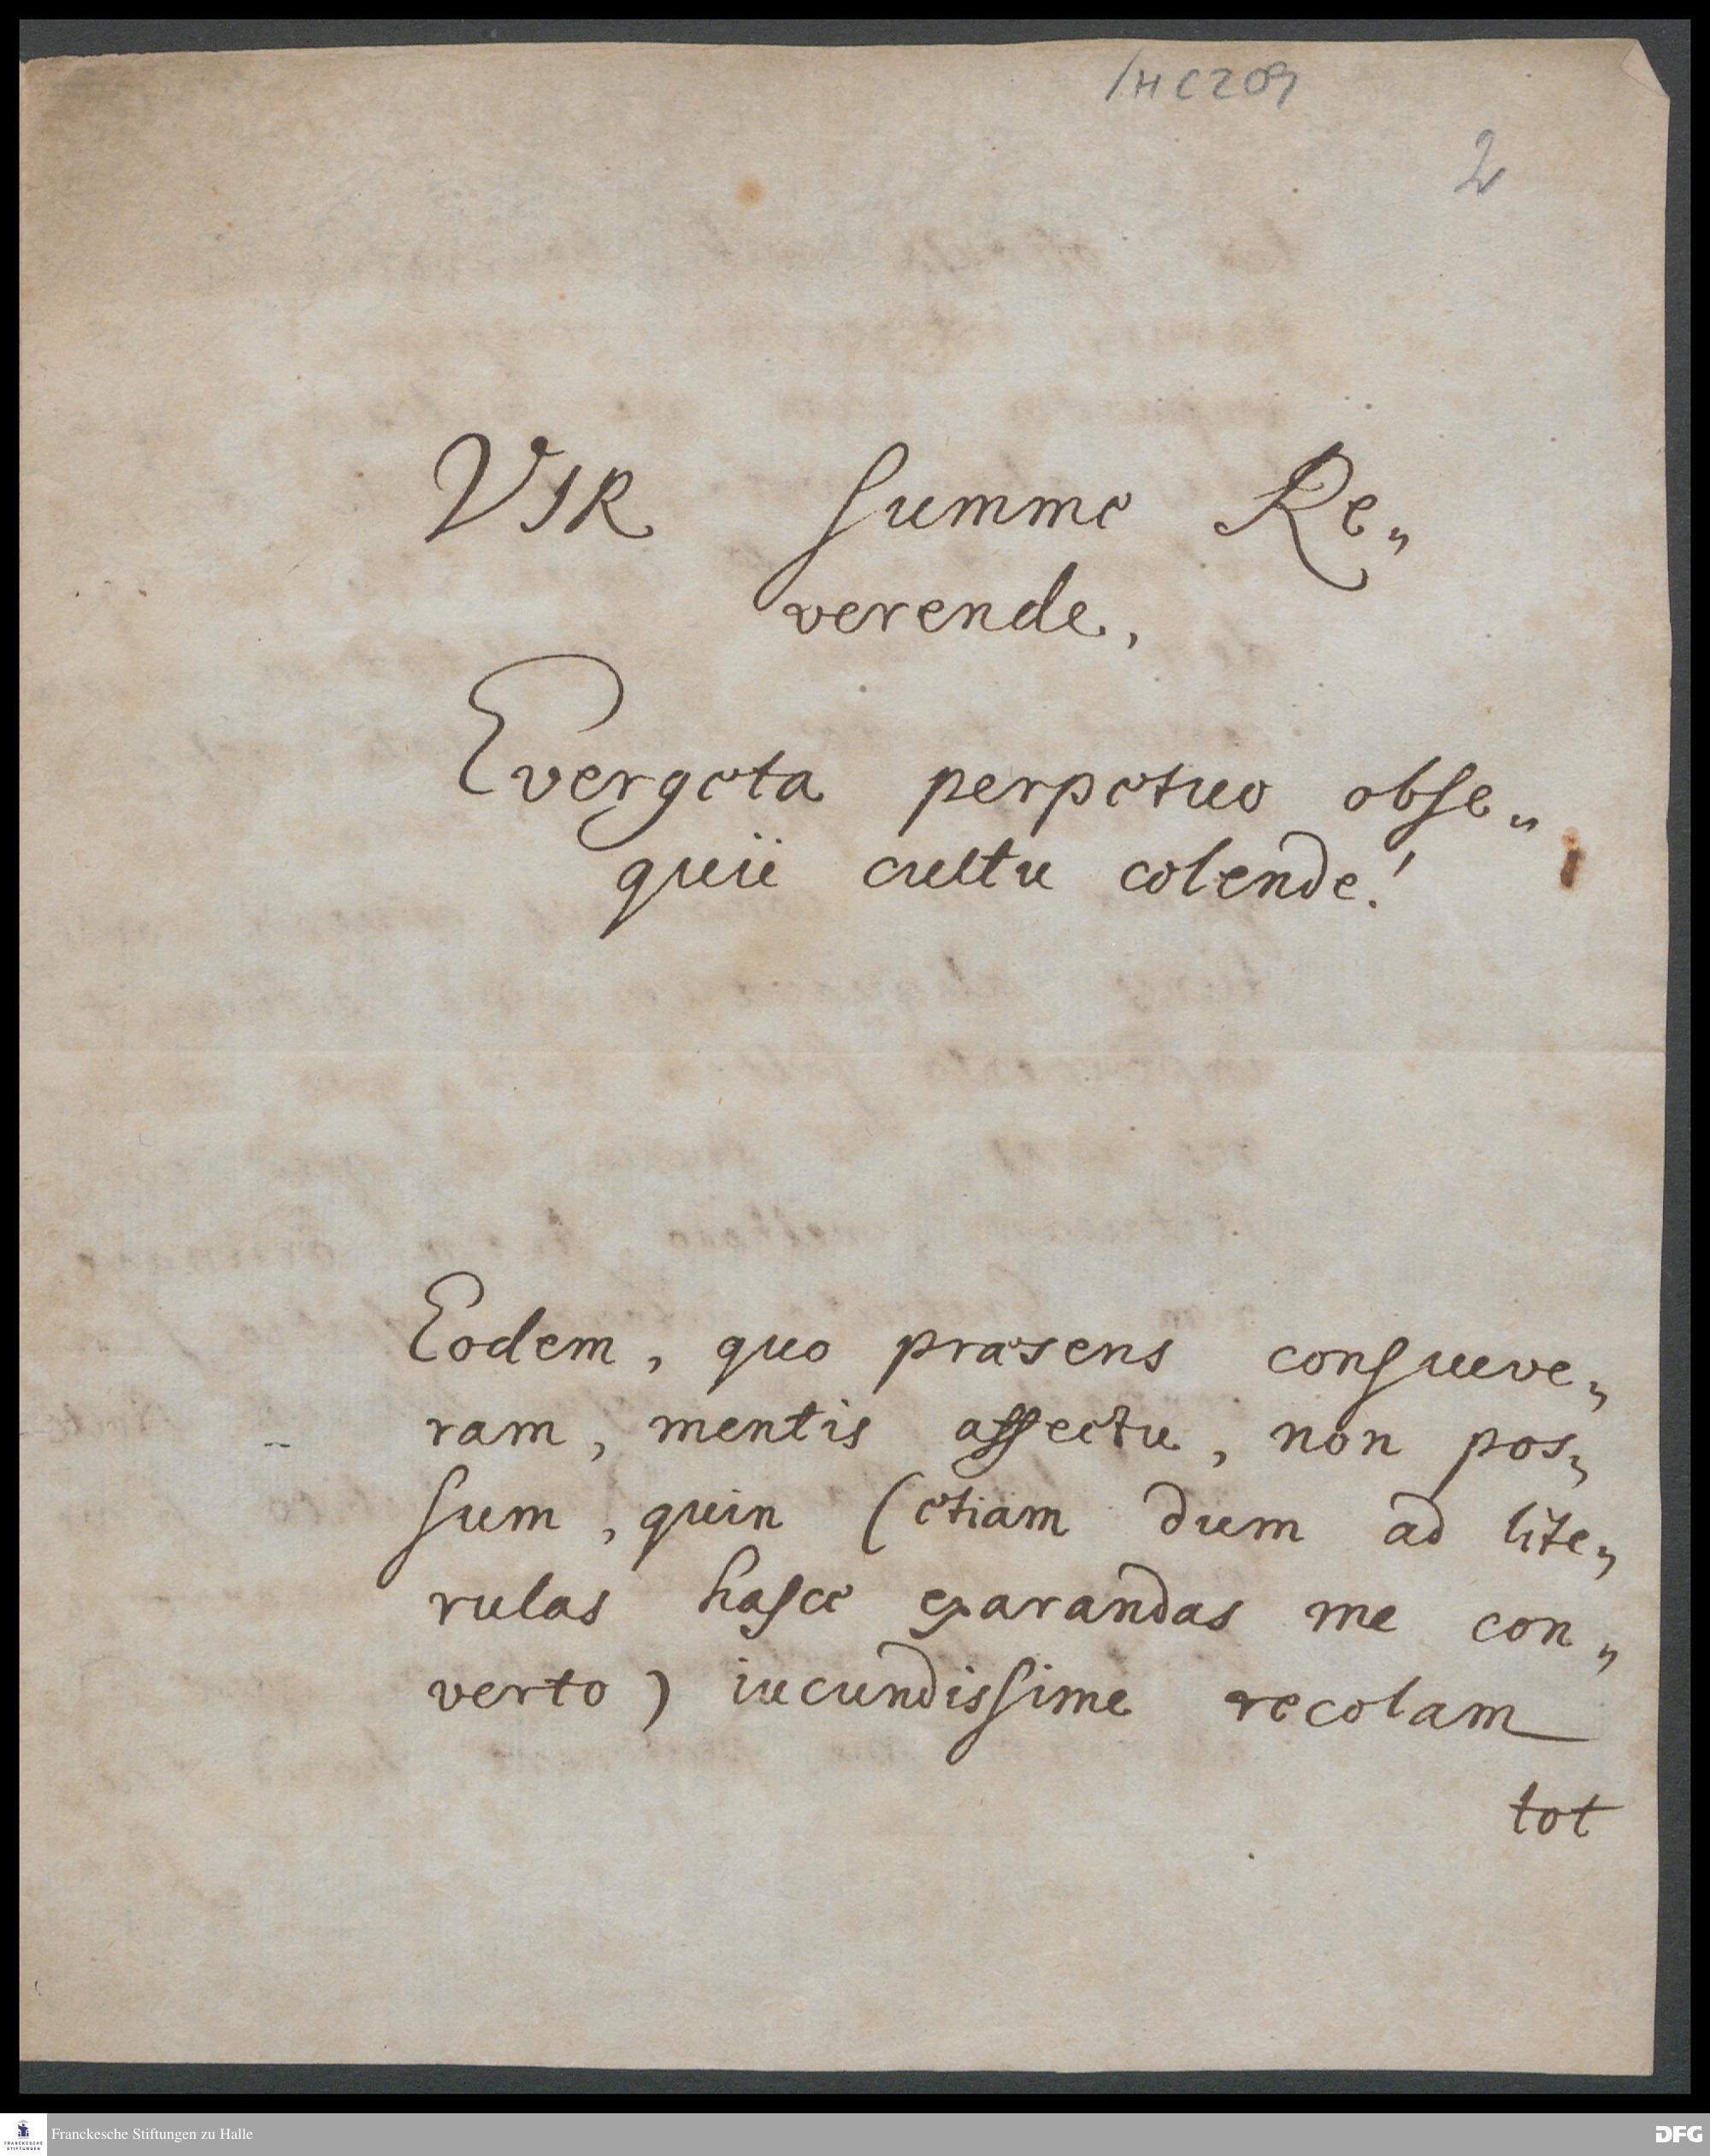 /HC209
2
VIR summe Re„
verende,
Evergeta perpetuo obse„
quii cultu colende!
Eodem, quo præsens consueve„
ram, mentis affectu, non pos„
sum, quin (etiam dum ad lite„
rulas hasce exarandas me con„
verto) iucundissime recolam
tot
FRANCKESCHE STIFTUNGEN
Franckesche Stiftungen zu Halle
DFG